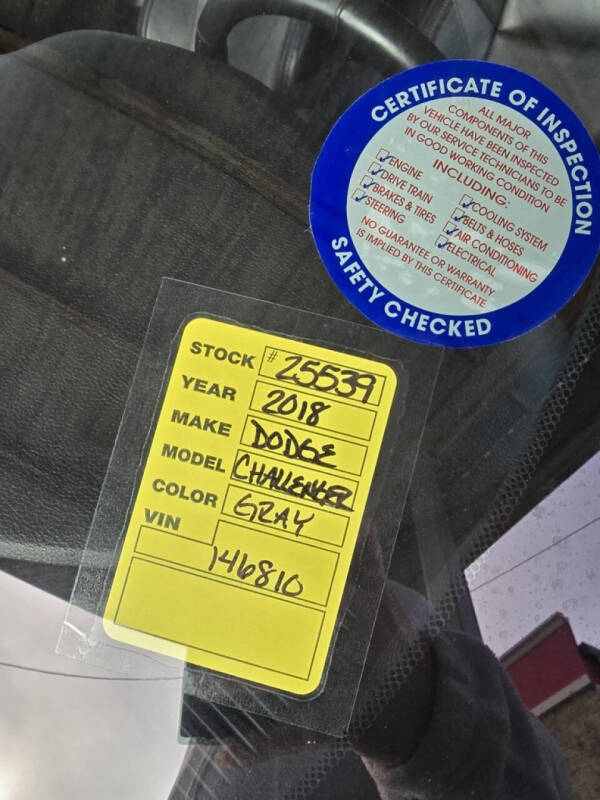 CERTIFICATE OF INSPECTION
ALL MAJOR
COMPONENTS OF THIS
VEHICLE HAVE BEEN INSPECTED
BY OUR SERVICE TECHNICIANS TO BE
IN GOOD WORKING CONDITION
INCLUDING:
ENGINE
DRIVE TRAIN
BRAKES & TIRES
STEERING
COOLING SYSTEM
BELTS & HOSES
AIR CONDITIONING
ELECTRICAL
NO GUARANTEE OR WARRANTY
IS IMPLIED BY THIS CERTIFICATE
SAFETY CHECKED
STOCK # 25539
YEAR 2018
MAKE DODGE
MODEL CHALLENGER
COLOR GRAY
VIN
146810